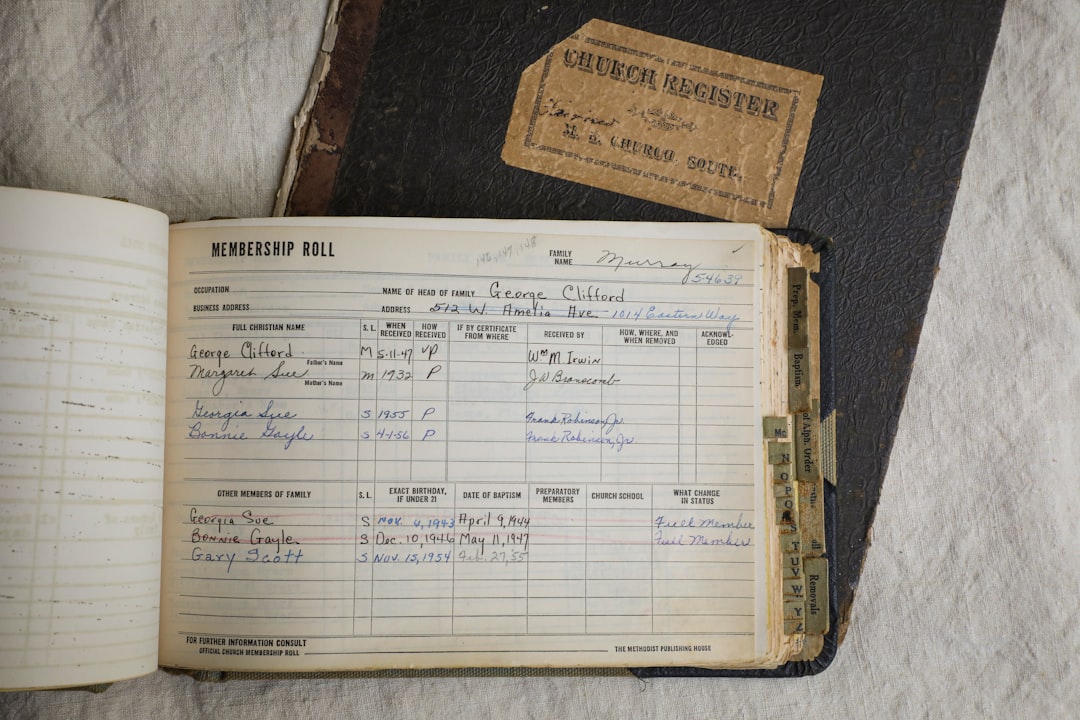 CHURCH REGISTER
M. E. CHURCH, SOUTH.
MEMBERSHIP ROLL
FAMILY NAME Murray
54639
OCCUPATION NAME OF HEAD OF FAMILY George Clifford
BUSINESS ADDRESS ADDRESS 512 W. Amelia Ave. 1014 Eastern Way
FULL CHRISTIAN NAME S. L. WHEN RECEIVED HOW RECEIVED IF BY CERTIFICATE FROM WHERE RECEIVED BY HOW, WHERE, AND WHEN REMOVED ACKNOWL-EDGED
George Clifford M 5-11-47 VP Wm M Irwin
Father's Name
Margaret Sue m 1932 P J W Branscomb
Mother's Name
Georgia Sue S 1955 P Frank Robinson, Jr.
Bonnie Gayle S 4-1-56 P Frank Robinson, Jr.
OTHER MEMBERS OF FAMILY S. L. EXACT BIRTHDAY, IF UNDER 21 DATE OF BAPTISM PREPARATORY MEMBERS CHURCH SCHOOL WHAT CHANGE IN STATUS
Georgia Sue S Nov. 4, 1943 April 9, 1944 Full Member
Bonnie Gayle S Dec. 10, 1946 May 11, 1947 Full Member
Gary Scott S Nov. 15, 1954 Feb. 27, '55
FOR FURTHER INFORMATION CONSULT
OFFICIAL CHURCH MEMBERSHIP ROLL THE METHODIST PUBLISHING HOUSE
Prep. Mem.
Baptism
of Alph. Order
Removals
Mc
N
O
P
S
T
U V
W
Y
Z